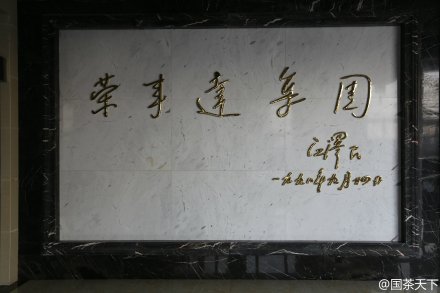 荣事达集团
江泽民
一九九八年九月廿四日
@国茶天下